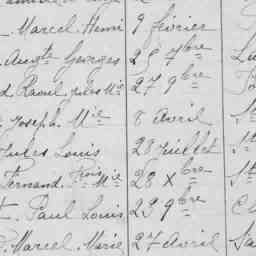 Marcel Henri 9 février
Augte Georges 25 7bre
Raoul Jules Mie 27 9bre
Joseph Mie 8 Avril
Jules Louis 28 Juillet
Fernand Frois Mie 28 Xbre
Paul Louis 29 9bre
Marcel Marie 27 Avril